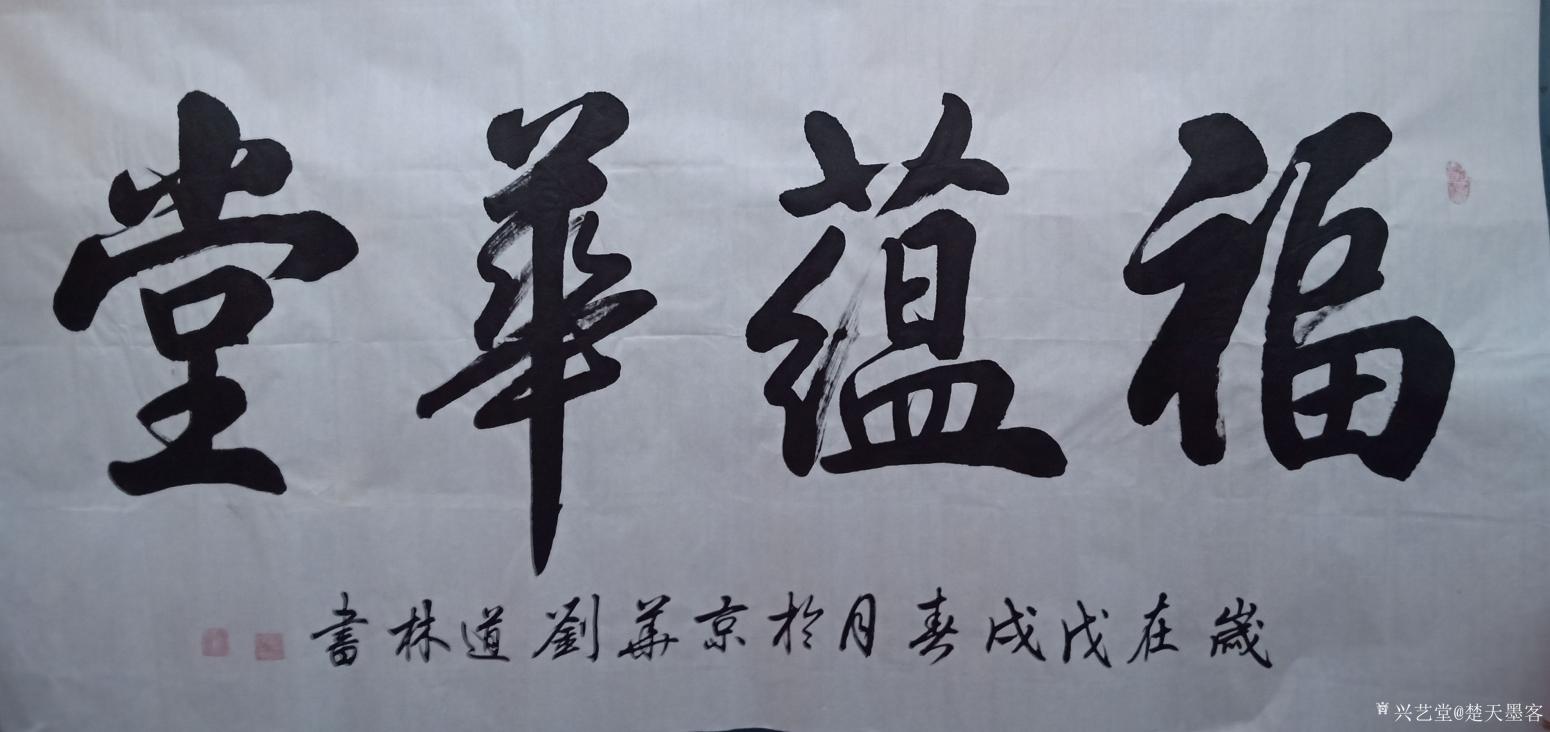 福蕴華堂
歲在戊戌春月於京華劉道林書
兴艺堂@楚天墨客